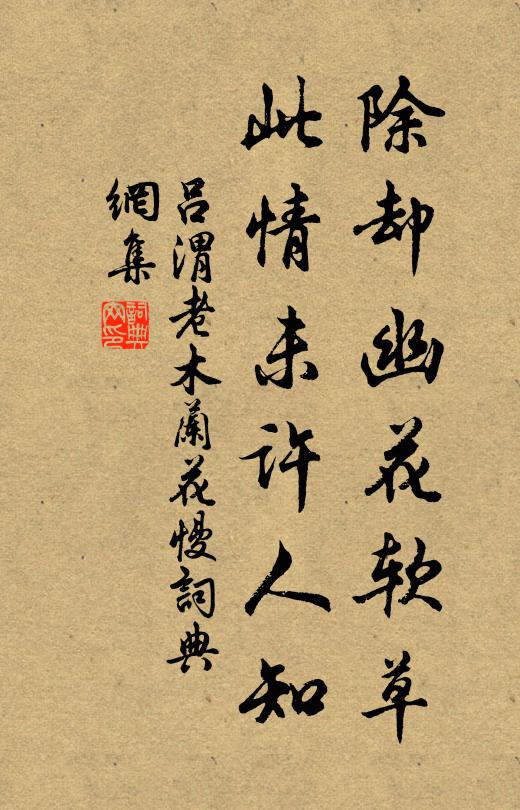 除却幽花软草
此情未许人知
吕渭老木蘭花慢詞典
網集
詞典
网印